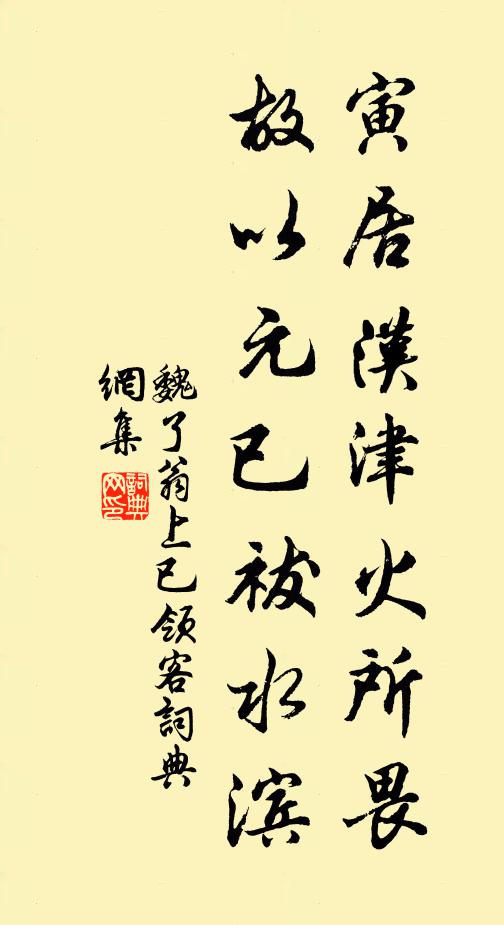 寅居漢津火所畏
故以元巳祓水滨
魏了翁上巳领客詞典
網集
詞典网印